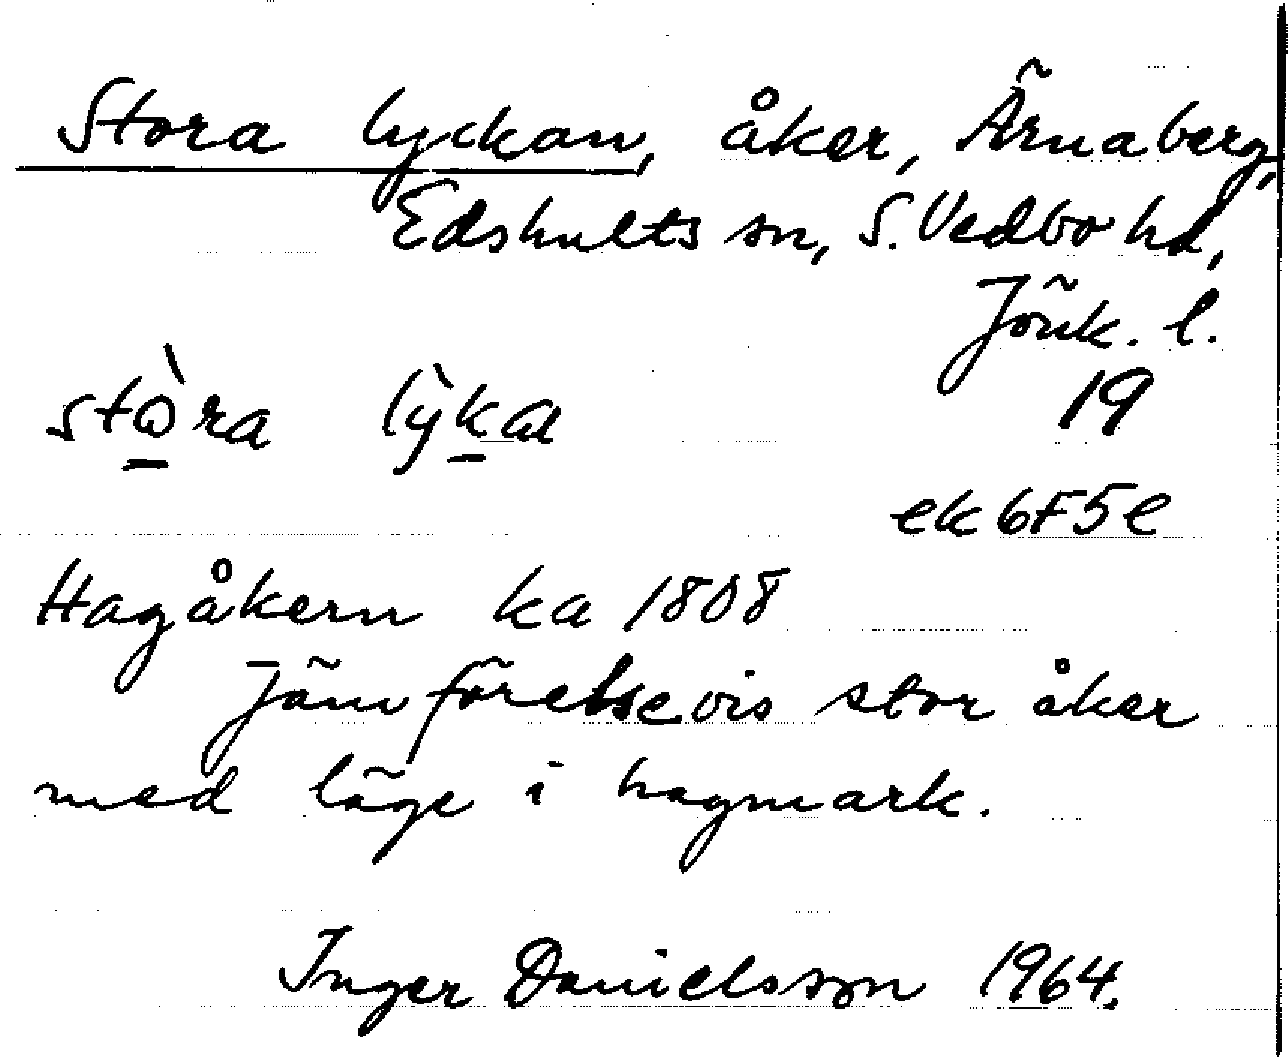 Stora lyckan, åker, Ärnaberg,
Edshults sn, S. Vedbo hd,
Jönk. l.
19
ek6F5e
Hagåkern ka 1808
Jämförelsevis stor åker
med läge i hagmark.
Inger Danielsson 1964.